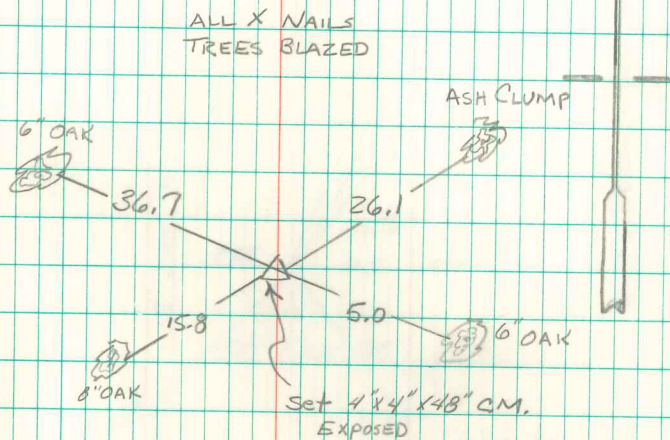 ALL X NAILS
TREES BLAZED
ASH CLUMP
6" OAK
36.7
26.1
15.8
5.0
6" OAK
8" OAK
Set 4"X4"X48" CM.
EXPOSED